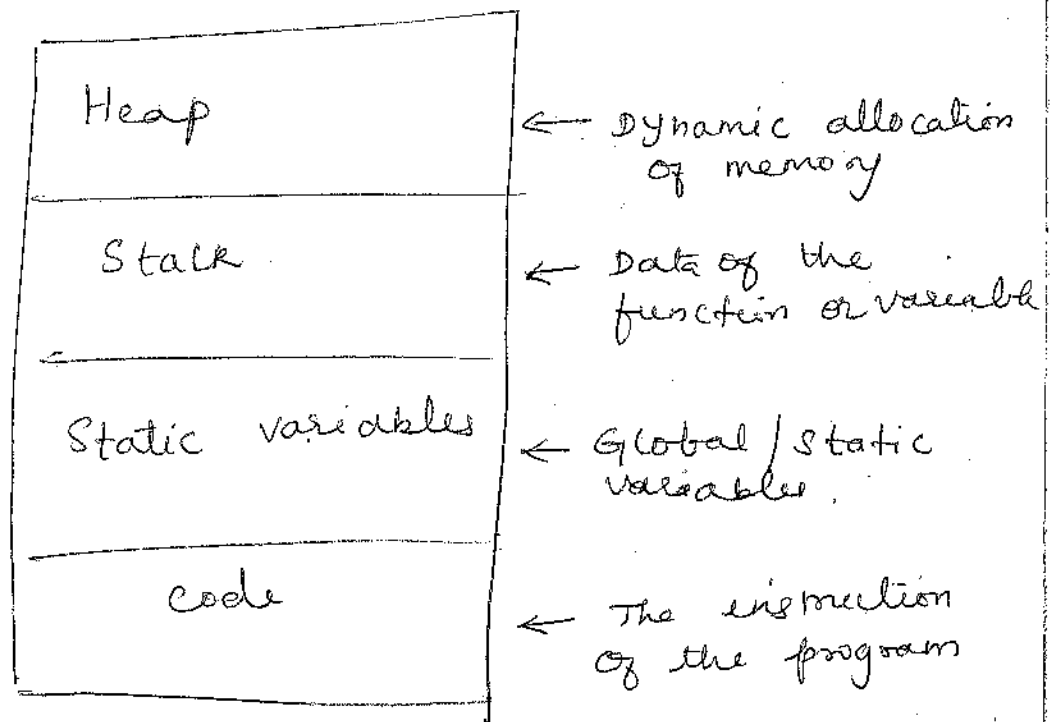 Heap
← Dynamic allocation
of memory
Stack
← Data of the
function or variable
Static variables
← Global/static
variables.
code
← The instruction
of the program